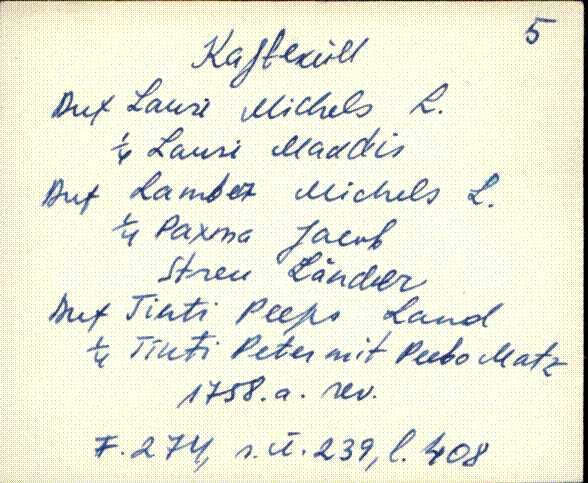 5
Kastexüll
Auf Lauri Michels L.
1/4 Lauri Maddis
Auf Lambez Michels L.
1/4 Paxma Jacob
Streu Länder
Auf Tinti Peeps Land
1/4 Tinti Peter mit Peebo Matz
1758.a. rev.
F. 274, n. ü. 239, l. 408